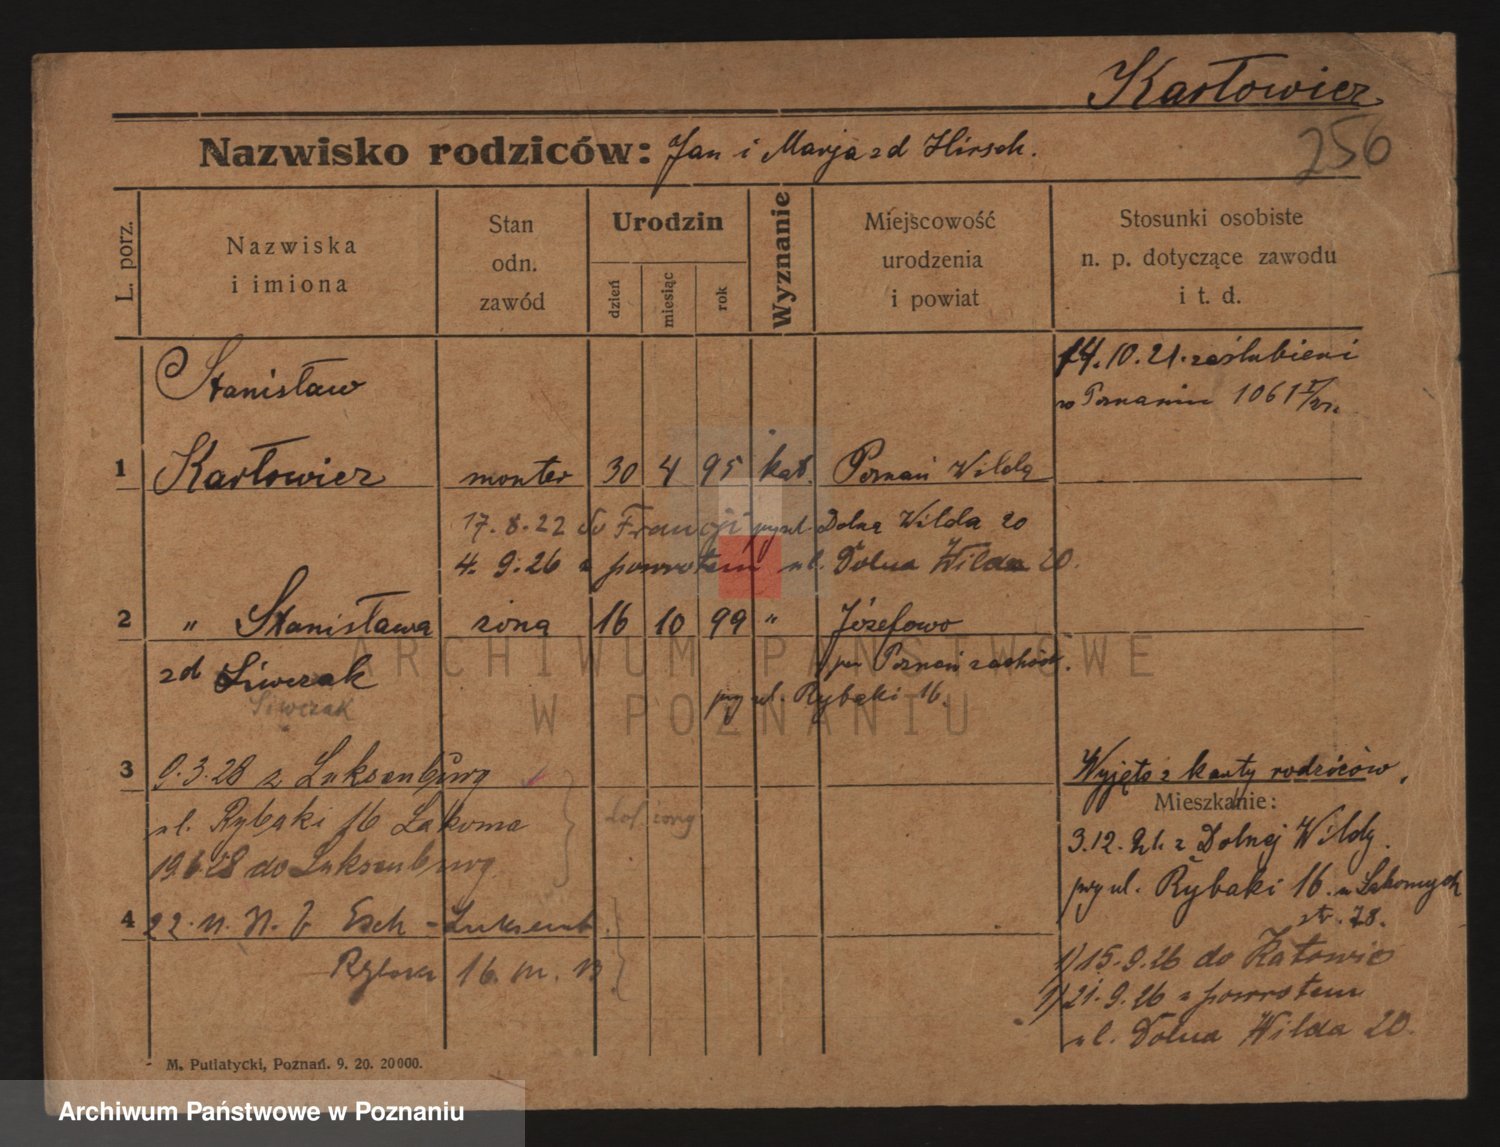 Karłowicz
256
Nazwisko rodziców: Jan i Marja zd Hirsch.
L. porz.
Nazwiska
i imiona
Stan
odn.
zawód
Urodzin
dzień
miesiąc
rok
Wyznanie
Miejscowość
urodzenia
i powiat
Stosunki osobiste
n. p. dotyczące zawodu
i t. d.
Stanisław
14.10.21. zaślubieni
w Poznaniu 1061
1 Karłowicz monter 30 4 95 kat. Poznań Wilda
17.8.22 do Francji ul. Dolna Wilda 20
4.9.26 z powrotem ul. Dolna Wilda 20.
2 " Stanisława żona 16 10 99 " Józefowo
zd Siwczak pow. Poznań zachód.
Siwczak
przy ul. Rybaki 16.
3 9.3.28 z Luksenburg
Wyjęto z karty rodziców.
Mieszkanie:
ul. Rybaki 16 Łakoma
3.12.21. z Dolnej Wildy.
19.6.28 do Luksenburg.
przy ul. Rybaki 16. u Łakomych
str. 78.
4 22. Esch - Luksemb.
1) 15.9.26 do Katowic
16 m. 13
1) 21.9.26 z powrotem
ul. Dolna Wilda 20.
M. Putiatycki, Poznań. 9. 20. 20000.
ARCHIWUM PAŃSTWOWE
W POZNANIU
Archiwum Państwowe w Poznaniu